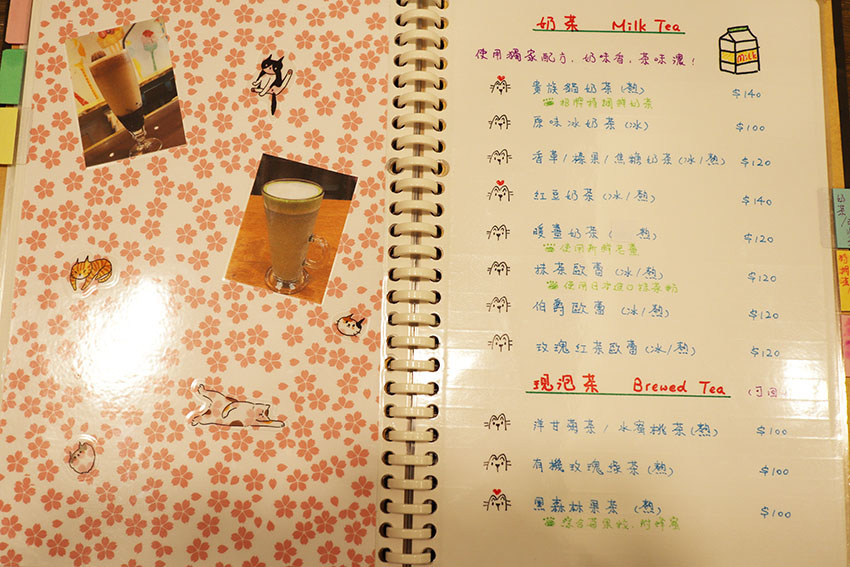 奶茶 Milk Tea
使用獨家配方，奶味香，茶味濃！
milk
貴族貓奶茶(熱) $140
招牌特調鴛奶茶
原味冰奶茶(冰) $100
香草/榛果/焦糖奶茶(冰/熱) $120
紅豆奶茶(冰/熱) $140
暖薑奶茶( 熱) $120
使用新鮮老薑
抹茶歐蕾(冰/熱) $120
使用日本進口抹茶粉
伯爵歐蕾(冰/熱) $120
玫瑰紅茶歐蕾(冰/熱) $120
現泡茶 Brewed Tea (可回
洋甘菊茶/水蜜桃茶(熱) $100
有機玫瑰綠茶(熱) $100
黑森林果茶(熱) $100
綜合莓果粒，附蜂蜜
奶茶/